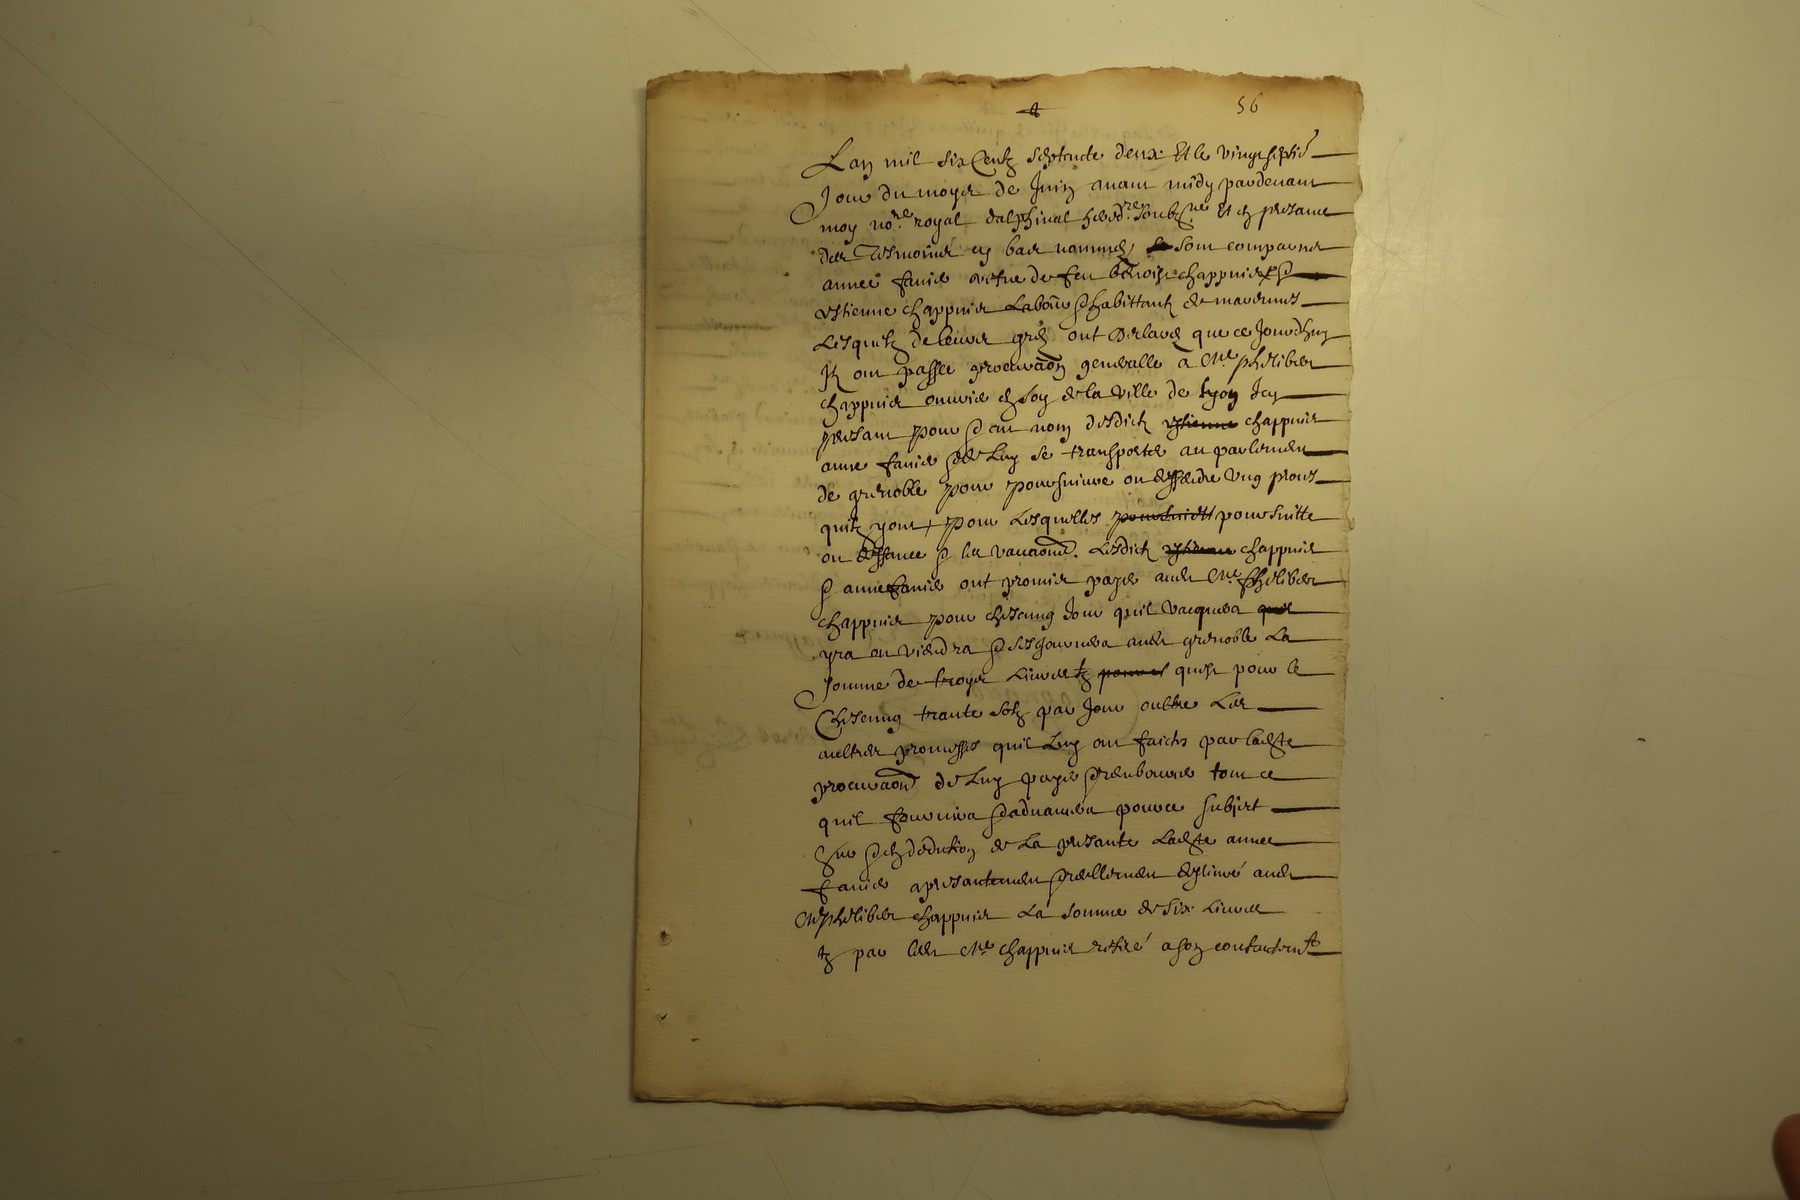 56
Lan mil six centz septente deux Et le vingt septie
Jour du moys de Juin avant midy pardevant
moy no.re royal dalphinal hered.re soubz.ne Et en presance
des Tesmoins en bas nommes sont comparus
annee favier vefve de feu benoist chappuis &
estienne chappuis Labour & habittant de
Lesquelz de leurs grez ont declare que ce Jourdhuy
Ilz ont passee procuraon generalle a Me philibert
chappuis ouvrie en soy de la ville de Lyon Icy
presant pour & au nom desdictz estienne chappuis
anne favier & de Luy se transporter au parlement
de grenoble pour poursuivre ou deffendre ung proces
quilz y ont + pour Lesquelles poursuitte
ou deffance & la vacaon. Lesdictz estienne chappuis
& anne favier ont promis payer audit Me philibert
chappuis pour chescung Jour quil vacquera quil
yra ou viendra & sesjournera audit grenoble La
somme de troys Livres tz quest pour le
chescung trante solz par Jour oultre Les
aultres promesses quil Luy ont faictes par ladicte
procuraon de Luy payer & rembourser tout ce
quil fournira & advancera pour ce subject
Sur & en dedution de La presante Ladicte annee
favier a presantement & reellement deslivré audit
Me philibert chappuis La somme de six Livres
tz par ledit Me chappuis retiré a son contantemt